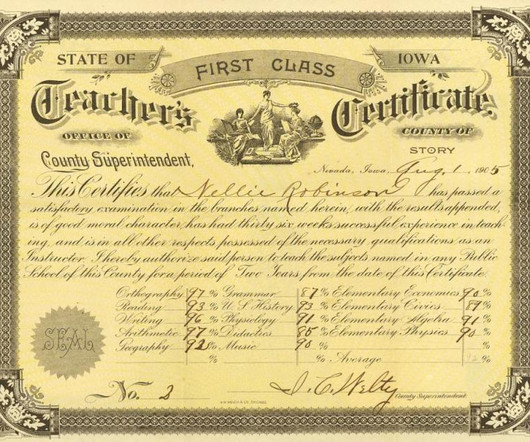 STATE OF FIRST CLASS IOWA
Teacher's Certificate.
OFFICE OF COUNTY OF
County Superintendent, STORY
Nevada, Iowa Aug. 1 1905
This Certifies that Nellie Robinson has passed a
satisfactory examination in the branches named herein, with the results appended,
is of good moral character, has had thirty six weeks successful experience in teach
ing, and is in all other respects possessed of the necessary qualifications as an
Instructor. I hereby authorize said person to teach the subjects named in any Public
School of this County for a period of Two Years from the date of this Certificate.
Orthography 97 % Grammar 87 % Elementary Economics 90 %
Reading 93 % U.S. History % Elementary Civics 89 %
Writing 96 % Physiology 91 % Elementary Algebra 91 %
Arithmetic 97 % Didactics 85 % Elementary Physics 90 %
Geography 92 % Music 90 %
% % Average %
SEAL
No. 3 I. C. Welty County Superintendent